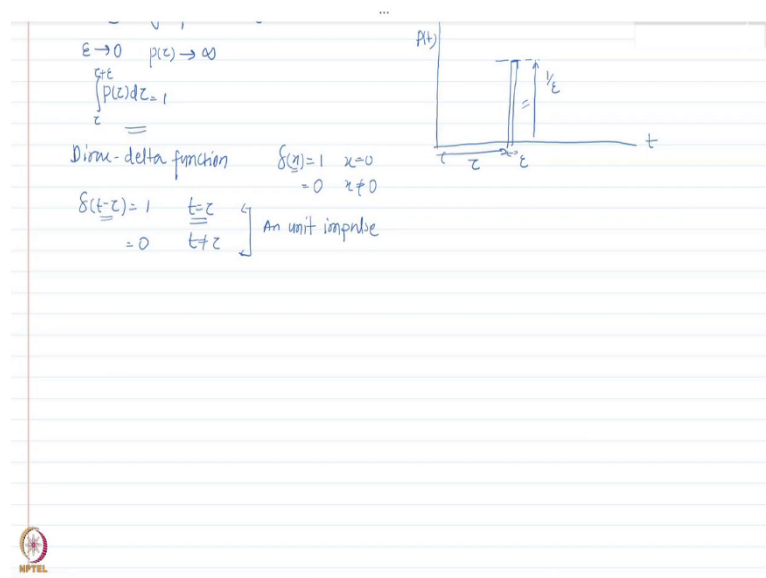 ε→0 p(τ)→∞
τ+ε
∫p(τ)dτ=1
τ
Dirac-delta function δ(x)=1 x=0
=0 x≠0
δ(t-τ)=1 t=τ
=0 t≠τ
An unit impulse
p(t)
1/ε
t
τ ε
NPTEL